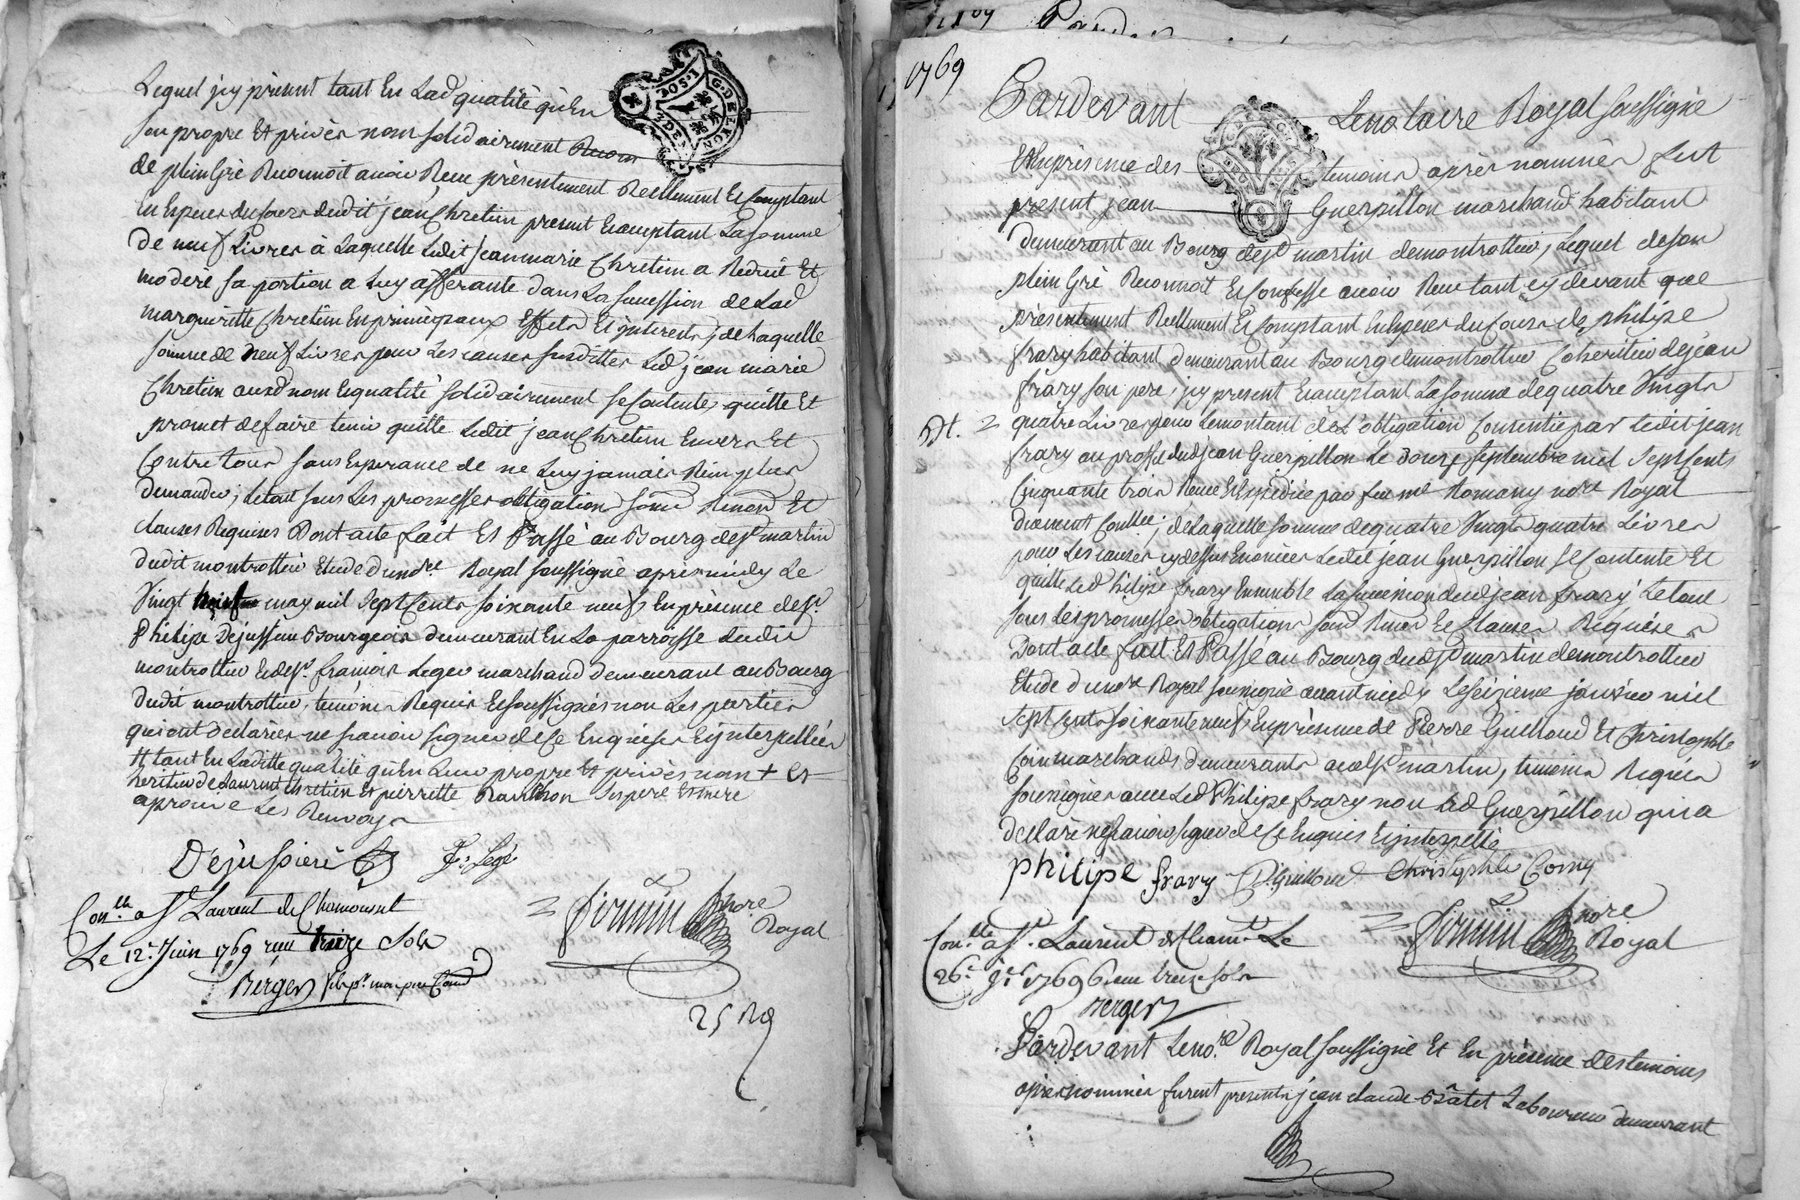 Lequel icy présent tant En Lad qualité qu'En
son propre Et privér nom solidairement
de plein Gré Reconnoit avoir Receu présentement Reellement Et Comptant
En Especes du Cours dudit jean Chretien present Et acceptant La somme
De neuf Livres à Laquelle Ledit Jean marie Chretien a Reduit Et
moderé sa portion a Luy afferante dans La succession de Lad
margueritte Chretien En principaux Effets Et interests, de Laquelle
somme de neuf Livres pour Les causes susdittes Led jean marie
Chretien aud nom Et qualité solidairement se Contente, quitte Et
promet de faire tenir quitte Ledit jean Chretien Envers Et
Contre tous sans Esperance de ne Luy jamais Rien plus
demander; Le tout sous Les promesses obligations Et
clauses Requises Dont acte fait Et Passé au Bourg de st martin
dudit montrottier Etude du nore Royal soussigné aprés midy Le
Vingt may mil sept Cents soixante neuf En présence de sr
Philipe Dejussieu Bourgeois demeurant En La parroisse dudit
montrottier Et de sr françois Leger marchand demeurant au Bourg
dudit montrottier, temoins Requis Et soussignés non Les parties
qui ont declarées ne sçavoir signer de Ce Enquises Et interpellées
# tant En Laditte qualité qu'En Leur propre Et privés nom + Et
heritier de Laurent Chretien Et pierrette Ses pere Et mere
aprouvé Les Renvoys
Dejussieu F: Legé
Conllé a St Laurent de Chamousset
Le 12e Juin 1769 reçu treize Sols
Berger
nore
Royal
25
1769
Pardevant Le notaire Royal soussigné
Et En présence des temoins aprés nommés fut
présent jean Guerpillon marchand habitant
Demeurant au Bourg de st martin de montrottier, Lequel de son
plein Gré Reconnoit Et Confesse avoir Receu tant cy devant que
présentement Reellement Et Comptant En Especes du Cours de philipe
frary habitant demeurant au Bourg de montrottier Coheritier de jean
frary son pere, icy present Et acceptant La somme de quatre Vingts
quatre Livres pour Le montant de L'obligation Consentie par Ledit jean
frary au proffit dud jean Guerpillon Le Douze septembre mil sept Cents
Cinquante trois Receue Et Expediée par feu me Romany nore Royal
Duement Conllée; de Laquelle somme de quatre Vingts quatre Livres
pour Les causes cy dessus Enoncées Ledit jean Guerpillon se Contente Et
quitte Led Philipe frary Ensemble La succession dud jean frary Le tout
sous Les promesses obligations Et Clauses Requises
Dont acte fait Et Passé au Bourg dud st martin de montrottier
Etude du nore Royal soussigné avant midy Le seizieme janvier mil
sept Cents soixante neuf En présence de Pierre Guilloud Et Christophle
Coin marchands demeurants aud st martin, temoins Requis
soussignés avec Led Philipe frary non Led Guerpillon qui a
declaré ne sçavoir signer de Ce Enquis Et interpellé
philipe frary P. Guilloud Christophle
nore
Royal
Conllé a St Laurent de Chamt Le
26e 1769 reçu treize sols
Berger
Pardevant Le nore Royal soussigné Et En présence des temoins
aprés nommés furent presents jean claude Laboureur demeurant